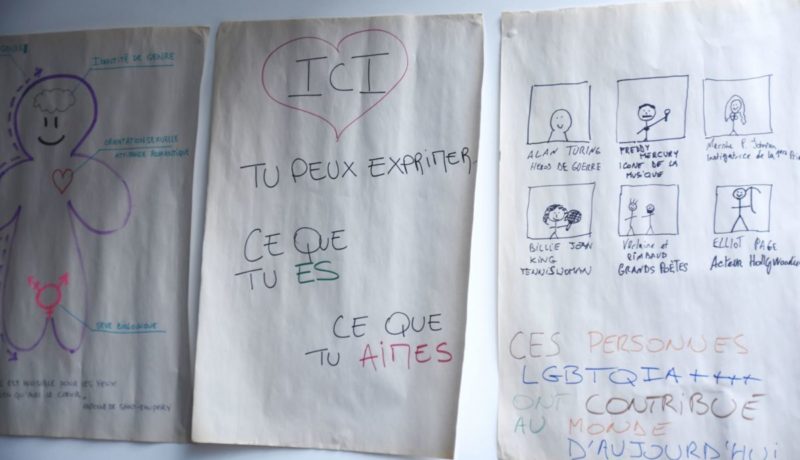 IDENTITÉ DE GENRE
ORIENTATION SEXUELLE
ATTIRANCE ROMANTIQUE
SEXE BIOLOGIQUE
EST INVISIBLE POUR LES YEUX
QU'AVEC LE CŒUR.
ANTOINE DE SAINT-EXUPÉRY
ICI
TU PEUX EXPRIMER
CE QUE
TU ES
CE QUE
TU AIMES
ALAN TURING
HÉROS DE GUERRE
FREDDY
MERCURY
ICONE DE LA
MUSIQUE
Marsha P. Johnson
Instigatrice de la 1ère
BILLIE JEAN
KING
TENNISWOMAN
Verlaine et
RIMBAUD
GRANDS POÈTES
ELLIOT PAGE
Acteur
CES PERSONNES
LGBTQIA++++
ONT CONTRIBUÉ
AU MONDE
D'AUJOURD'HUI